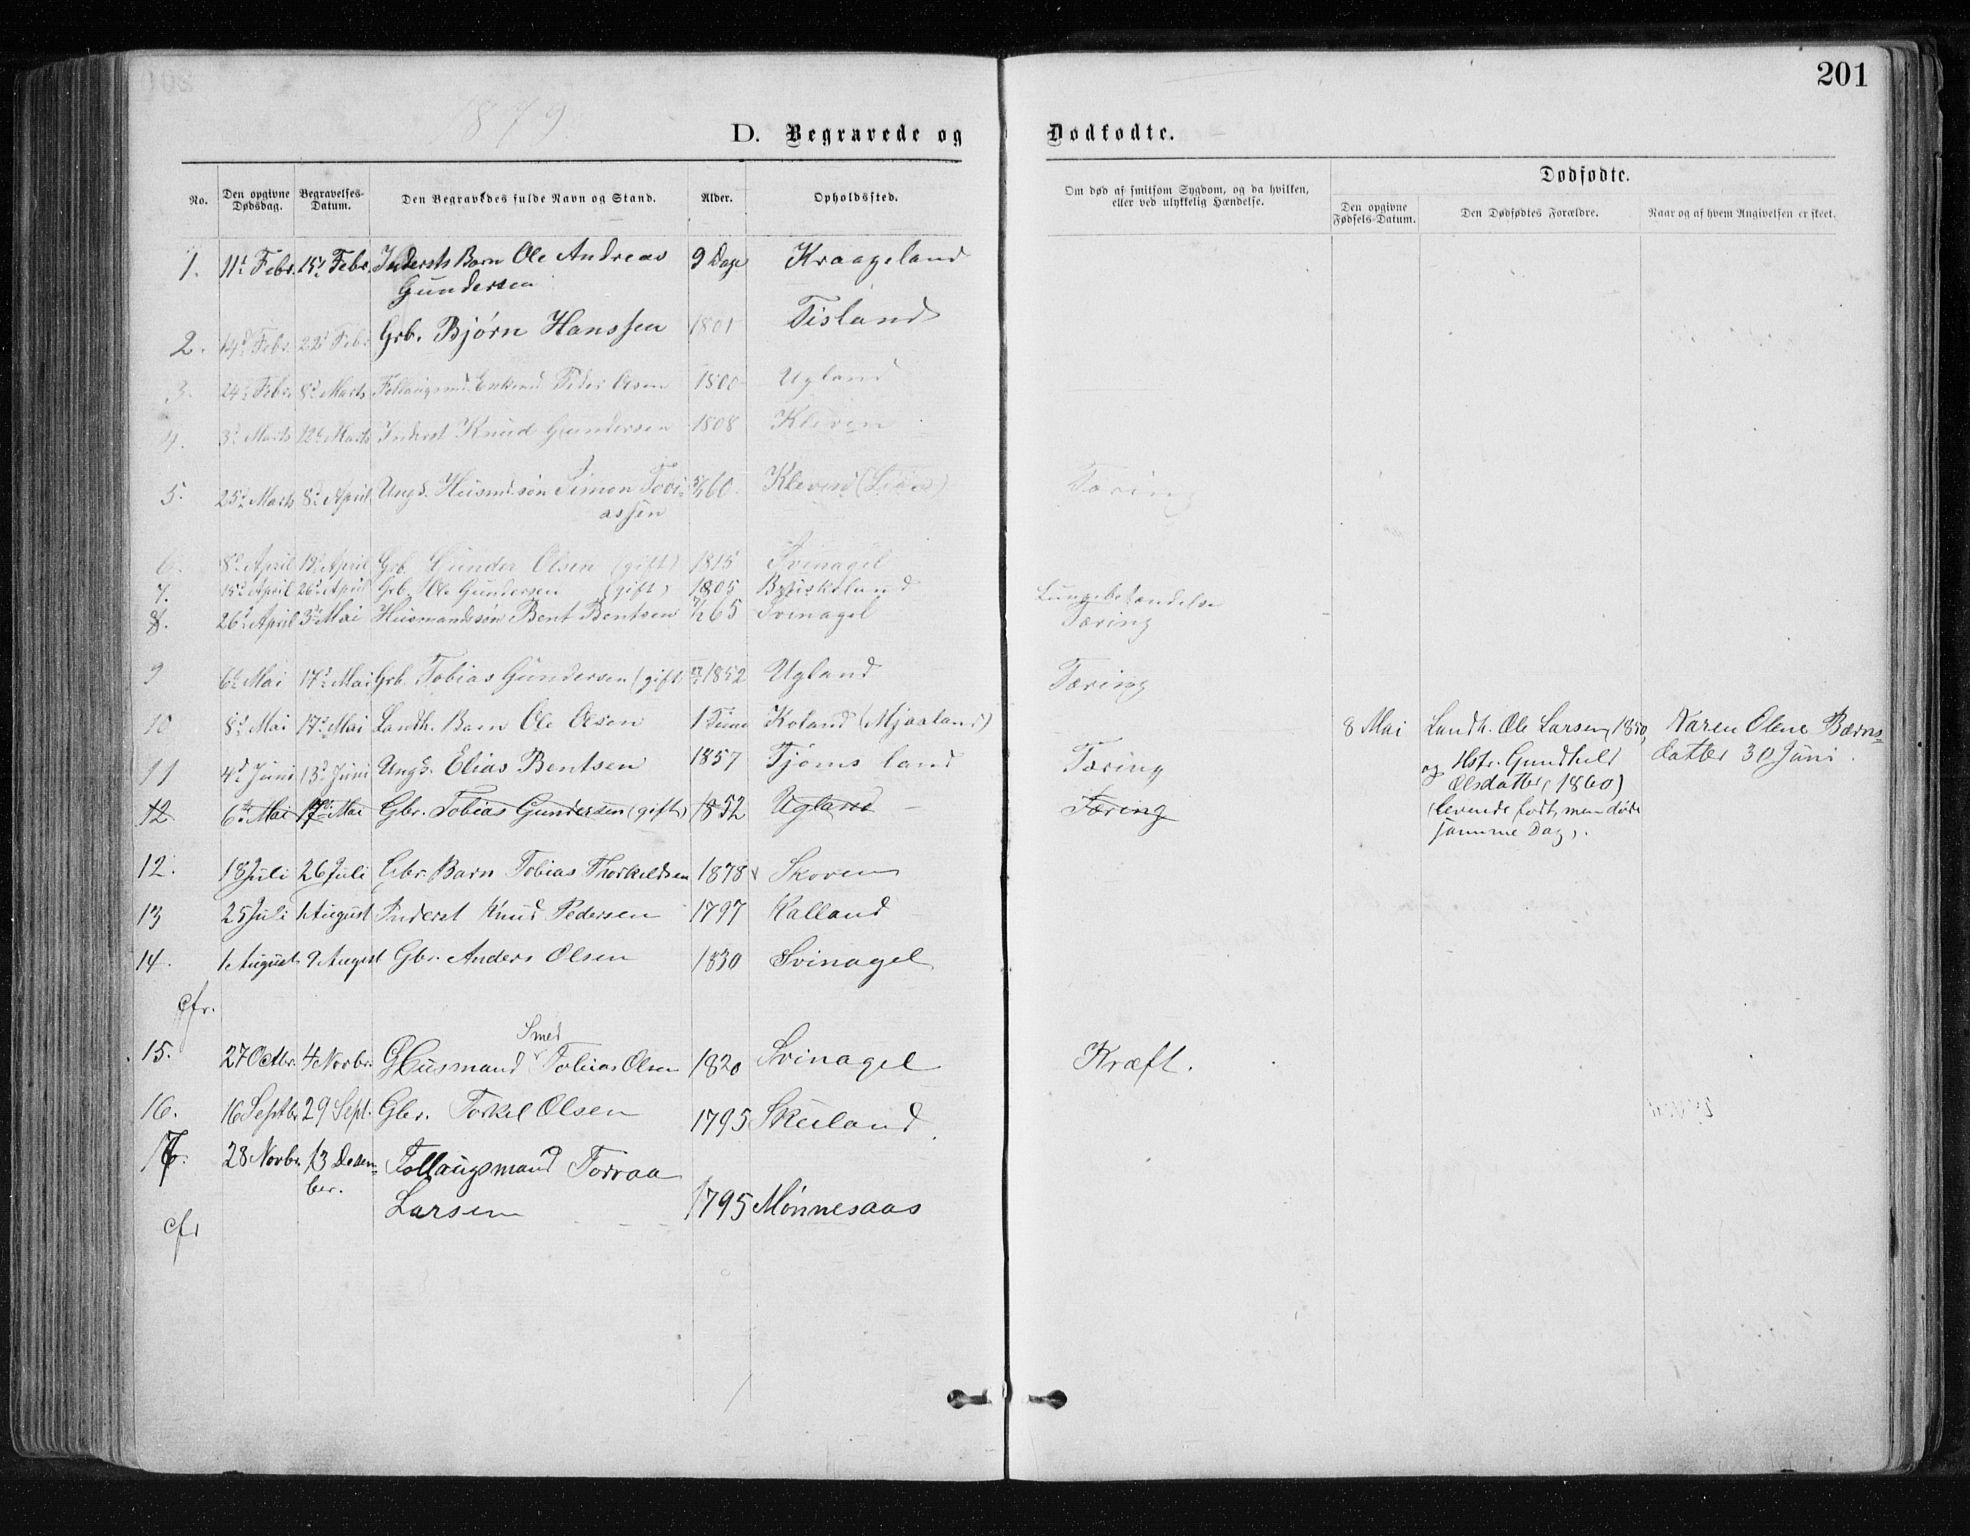 201
1879
D. Begravede og Dødfødte.
No. Den opgivne Dødsdag. Begravelses-Datum. Den Begravedes fulde Navn og Stand. Alder. Opholdssted. Om død af smitsom Sygdom, og da hvilken, eller ved ulykkelig Hændelse. Dødfødte.
Den opgivne Fødsels-Datum. Den Dødfødtes Forældre. Naar og af hvem Angivelsen er skeet.
1. 11t Febr. 15 Febr. Indersts Barn Ole Andreas 9 Dage Kraageland
Gundersen
2. 14d Febr. 22d Febr Grb. Bjørn Hanssen 1801 Tisland
3. 24d Febr. 8d Marts Follaugsmd. Enkemd Peder Olsen 1800 Ugland
4. 3d Marts 12d Marts Inderst Knud Gundersen 1808 Kleven
5. 25d Marts 8d April Ungk. Husmd.søn Simon Tovi- 60 Kleven Tæring
assen
6. 8d April 19d April Grb. Gunder Olsen (gift) 1815 Svinagel
7. 15d April 26d April Grb. Ole Gundersen (gift) 1805 Bruskeland Lungebetændelse
8. 26d April 3d Mai Husmandssøn Bent Bentsen 65 Svinagel Tæring
9 6d Mai 17d Mai Grb. Tobias Gundersen (gift 1852 Ugland Tæring
10 8d Mai 17d Mai Landh. Barn Ole Olsen 1 Time Koland (Mjaaland) 8 Mai Landh. Ole Larsen, 1850, Karen Olene Bærns-
og Hstr. Gundhild datter 30 Juni.
Olsdatter, 1860)
(levende født, men døde
samme Dag).
11 4d Juni 13d Juni Ungk. Elias Bentsen 1857 Tjømsland Tæring
12 6te Mai 17de Mai Gbr. Tobias Gundersen (gift) 1852 Ugland Tæring
12. 18 Juli 26 Juli Gbr. Barn Tobias Thorkildsen 1878 Skoven
13 25 Juli 1 August Inderst Knud Pedersen 1797 Kalland
14. 1 August 9 August Gbr. Anders Olsen 1830 Svinagel
cfr.
Smed
15. 27 Octbr. 4 Novbr. Husmand Tobias Olsen 1820 Svinagel Kræft.
16. 16 Septbr 29 Sept. Gbr. Torkel Olsen 1795 Skeiland.
17. 28 Novbr. 13 Desem-
ber. Follaugsmand Torraa
Larsen 1795 Mønnesaas
cfr